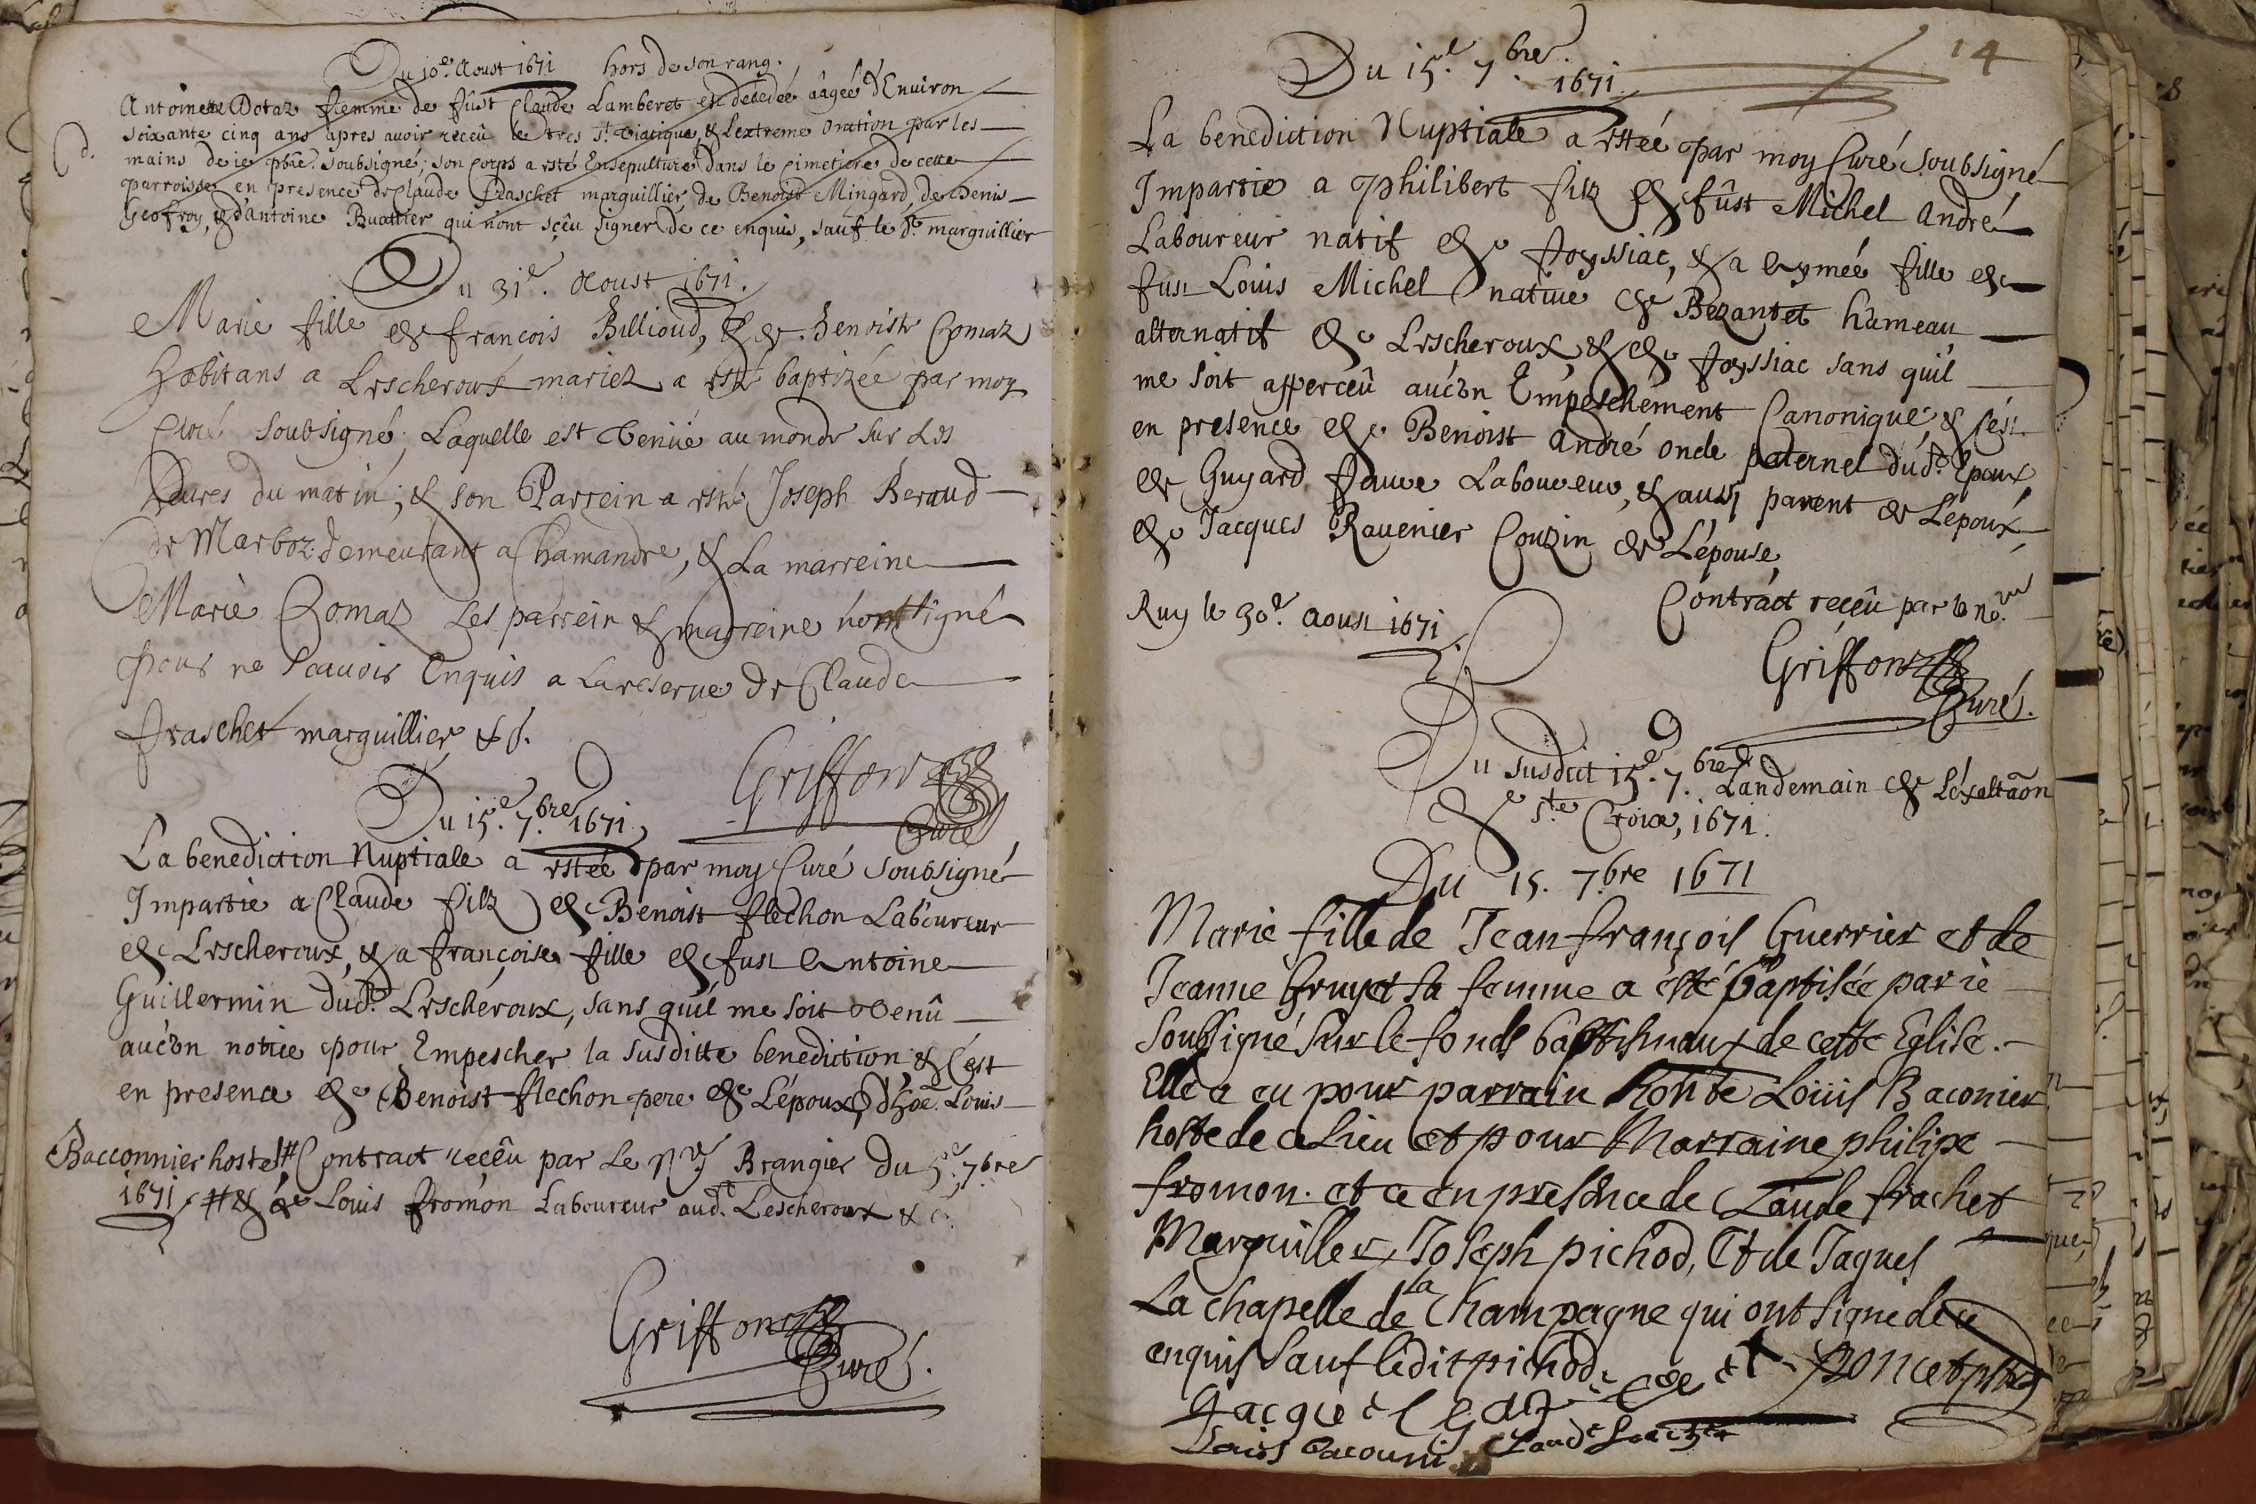 Du 10e. Aoust 1671 hors de son rang.
Antoinette femme de fust Claude Lamberet est décédée âagée d'Environ
soixante cinq ans apres avoir receû le tres St. Viatique, & Lextreme Onction par les
mains de ie pbre. soubsigné; son corps a esté Ensepulturé dans le Cimetiere de cette
d.
parroisse en presence de Claude fraschet marguillier, de Benoist Mingard, de Denis
Geofroy, & d'antoine Buattier qui n'ont sçêu signer de ce enquis, sauf le dt. marguillier
Du 31e. Aoust 1671.
Marie fille de françois Billioud, & de Benoiste Comaz
Habitans a Lescheroux mariez a esté baptizée par moy
Curé soubsigné; Laquelle est Venüe au monde sur les
heures du matin; & son Parrein a esté Joseph Beraud
de Marboz demeurant a Chamandre, & La marreine
Marie Comaz Les parrein & marreine n'ont signé
pour ne Scavoir Enquis a La reserve de Claude
fraschet marguillier &c.
Griffon
Curé
Du 15e. 7.bre 1671.
La benediction Nuptiale a estée par moy Curé soubsigné
Impartie a Claude filz de Benoist flechon Laboureur
de Lescheroux, & a françoise fille de fust Antoine
Guillermin dud. Lescheroux, sans qu'il me soit Venû
auc'vn notice pour Empescher la susditte benediction; & C'est
en presence de Benoist flechon pere de L'époux, d'hoe. Louis
Bacconnier hoste # Contract reçêu par Le Nre Brangier du 5e. 7bre
1671. # & de Louis fromon Laboureur aud. Lescheroux &c.
Griffon
Curé.
14
Du 15e. 7.bre
1671.
La benediction Nuptiale a estée par moy Curé soubsigné
Impartie a Philibert filz de fûst Michel André
Laboureur natif de foyssiac, & a Aymée fille de
fust Louis Michel native de Bezantet hameau
alternatif de Lescheroux, & de foyssiac sans qu'il
me soit apperceû auc'vn Empeschement Canonique, & c'est
en presence de Benoist André oncle paternel dud. Epoux
de Guyard favre Laboureur, & aussi parent de L'époux,
de Jacques Ravenier Couzin de L'épouse,
Contract reçêu par le Nre.
Ruy le 30e. Aoust 1671.
Griffon
Curé.
Du susdict 15e. 7.bre Landemain de L'éxaltaõn
de Ste. Croix, 1671.
Du 15. 7.bre 1671
Marie fille de Jean françois Guerrier et de
Jeanne Gruyet sa femme a esté baptisée par ie
soubsigné sur le fonds baptismaux de cette Eglise.
Elle a eu pour parrain hon̄te Louis Baconier
hoste de ce lieu et pour Marraine philipe
fromon. et ce en presence de Claude frachet
Marguiller, Joseph pichod, Et de Jaques
La chapelle de la Champagne qui ont signe de ce
enquis sauf ledit pichod. Poncet pbre
Jacque
Louis baconni Claude frachet